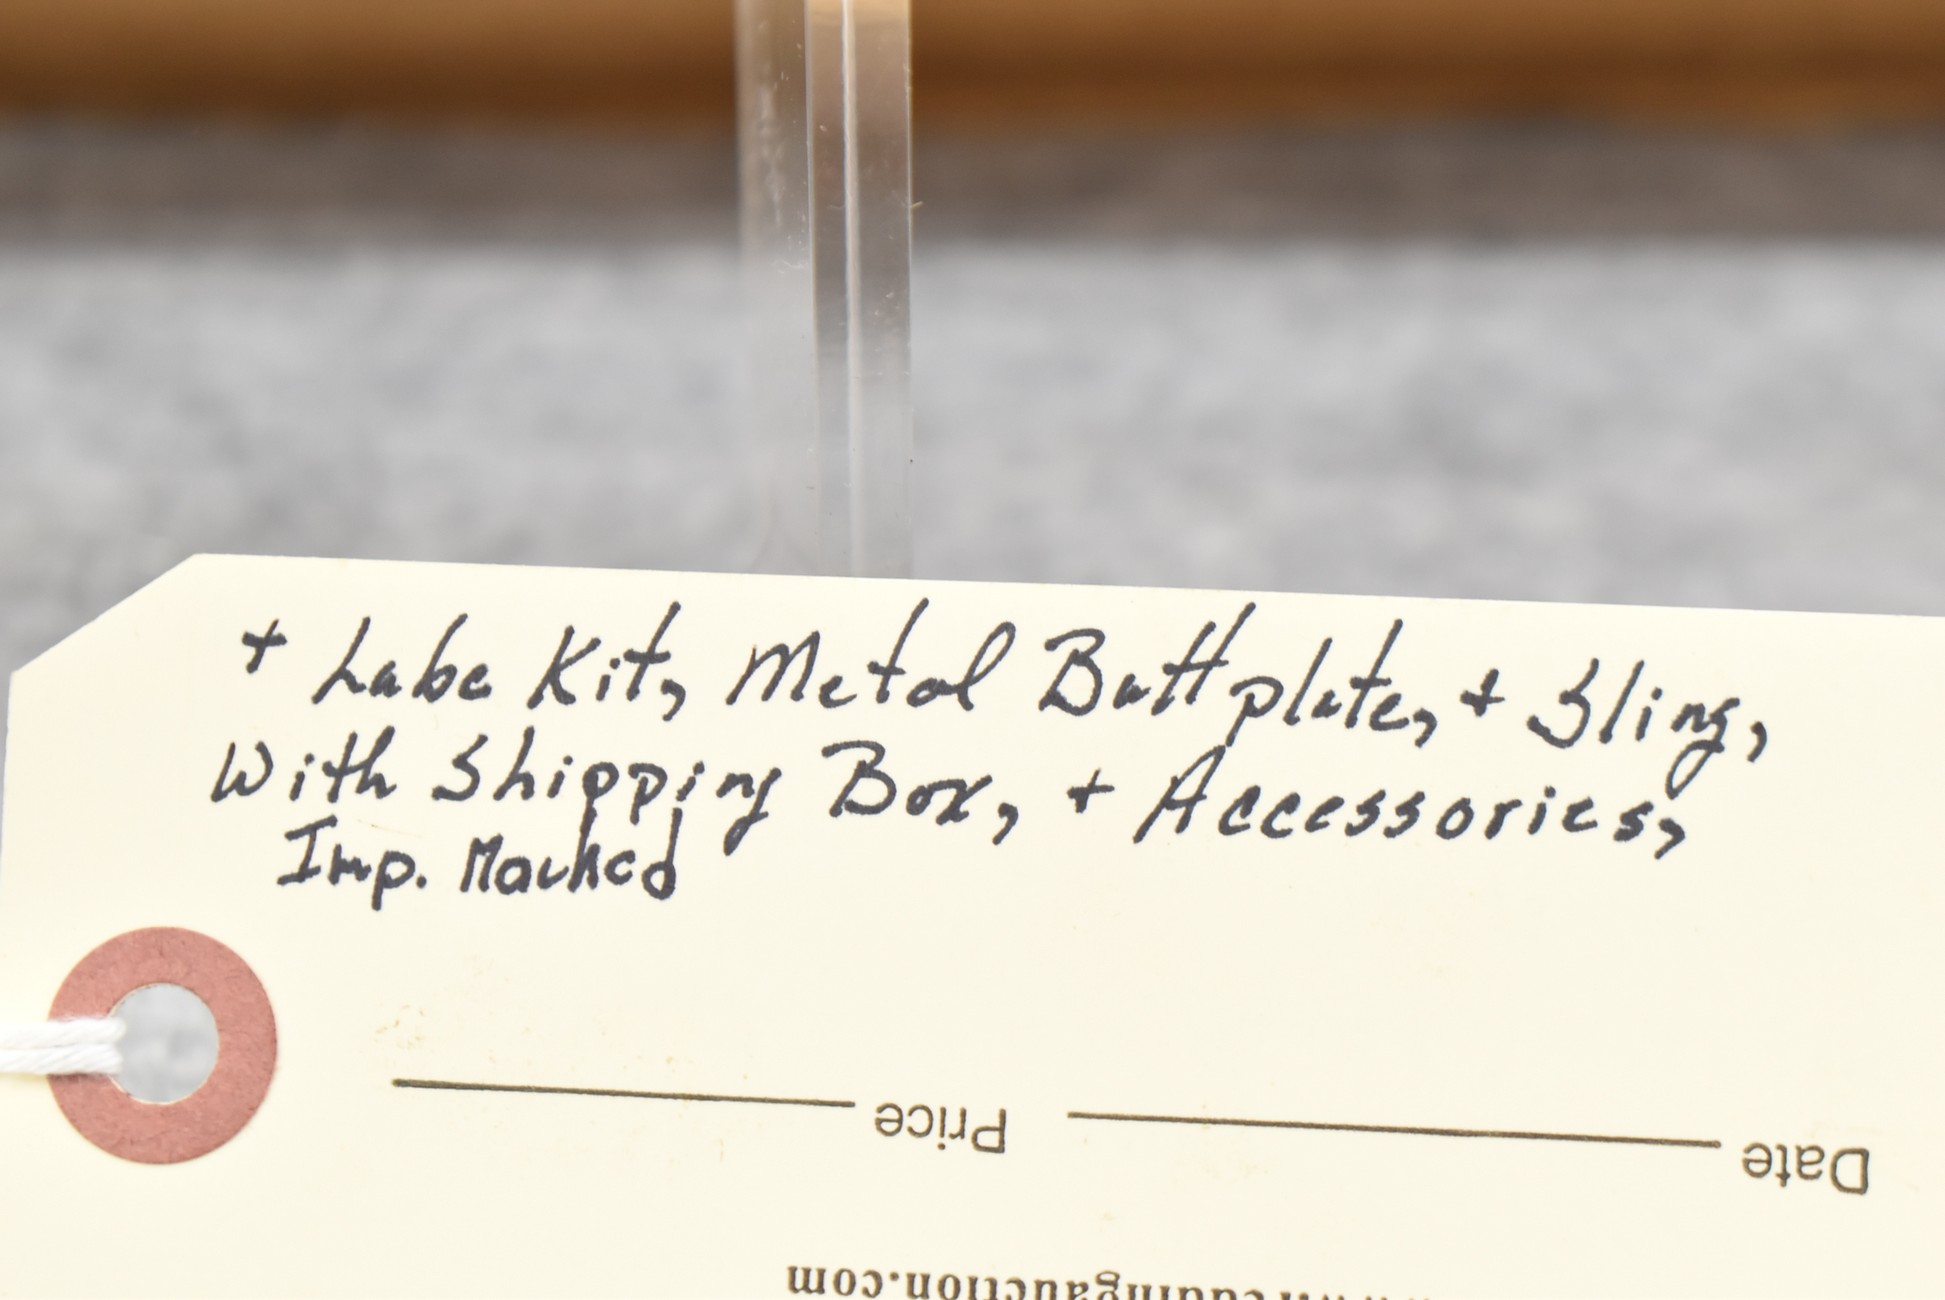 + Lube Kit, Metal Buttplate, + Sling,
With Shipping Box, + Accessories,
Imp. Marked
Price
Date